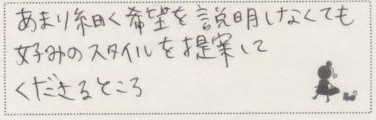 あまり細く希望を説明しなくても
好みのスタイルを提案して
くださるところ